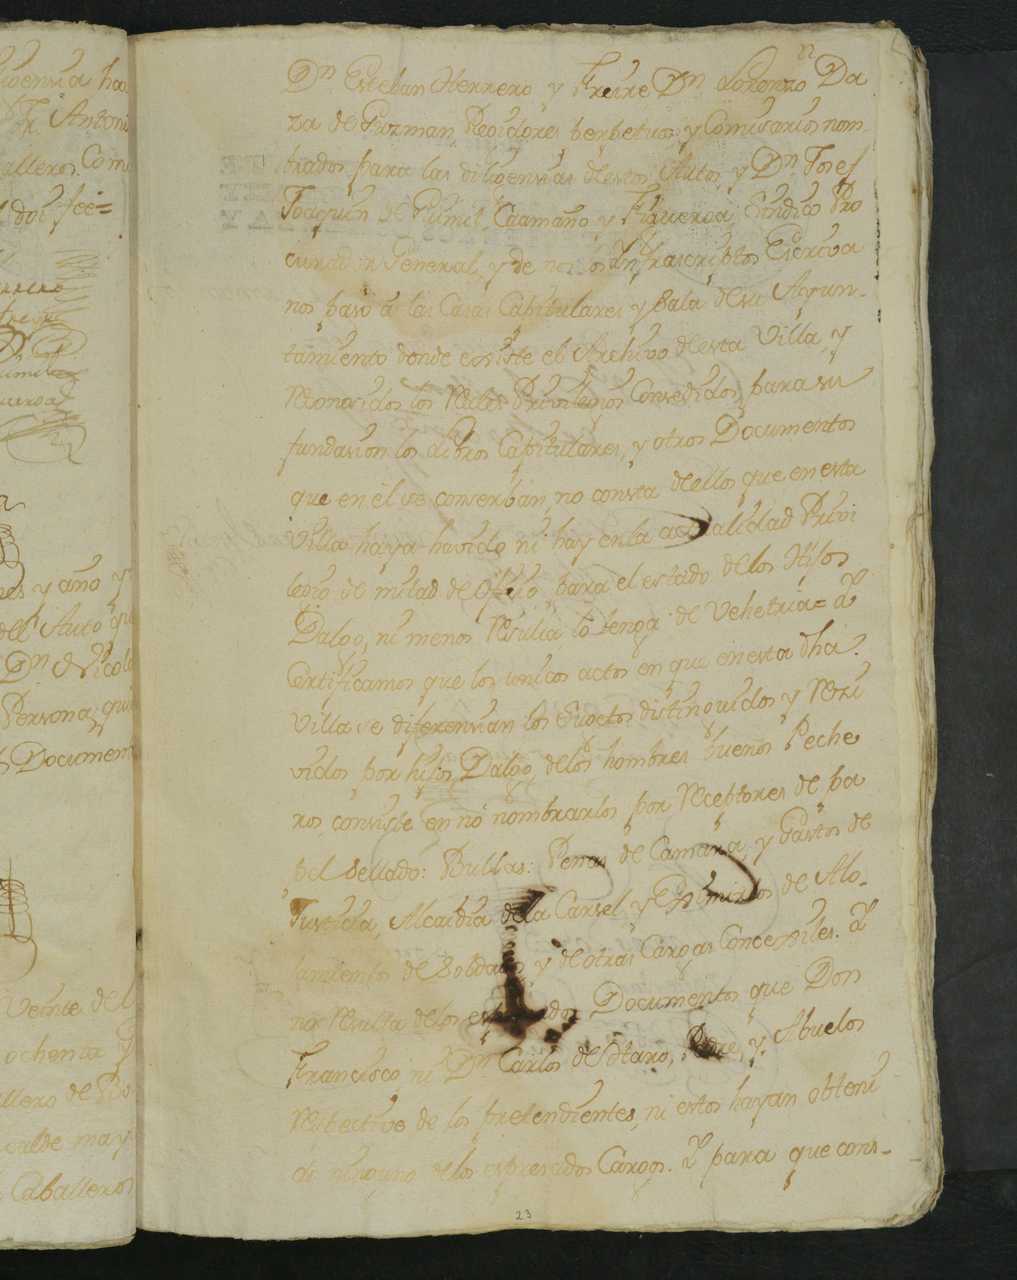 igensia hac
Fr. Antoni
alleros Comi
y doi fee=
nes y año y
del Auto qu
Dn. Nicola
Persona, que
Documen
Veinte de
ochenta y
allero de
calde may
Caballeros
Dn. Esteban Herrero y Freire Dn. Lorenzo Da
za de Guzman Regidores perpetuos, y Comisarios nom
brados para las diligensias de estos Autos, y Dn. Josef
Joaquin de Pumil, Caamaño, y Figueroa Sindico Pro
curador General, y de nos los Infrascriptos Escriva
nos pasó á las Casas Capitulares y Sala de su Ayun-
tamiento donde existe el Archivo de esta Villa, y
Reconosidos los Reales Privilegios Consedidos, para su
fundasion los Libros Capitulares, y otros Documentos
que en él se conserban, no consta de ellos que en esta
Villa haya havido, ni hay en la actualidad Privi
legio de mitad de Oficio, para el estado de los Hijos
Dalgo, ni menos Resulta, lo tenga de Vehetria= Y
Certificamos que los unicos actos en que en esta dha.
Villa se diferensian los Sugetos distinguidos y Resi
vidos por hijos Dalgo, de los hombres buenos Peche
ros consiste en nó nombrarlos por Receptores de pa
pel Sellado: Bullas: Penas de Camara, y Gastos de
Justicia, Alcaidia de la Carsel y Eximirlos de Alo-
jamiento de Soldados y de otras Cargas Consejiles. Y
no Resulta de los espresados Documentos que Don
Francisco, ni Dn. Carlos de Haro, Padre, y Abuelos
Respective de los pretendientes, ni estos hayan obteni
do ninguno de los espresados Cargos. Y para que cons-
23